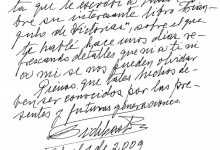 la que le escribí a
bre su interesante libro Trián-
gulo de Victorias", sobre el que
te hablé hace unos días re-
frescando detalles que ni a ti ni
a mí se nos pueden olvidar.
Pienso que tales hechos de-
ben ser conocidos por las pre-
sentes y futuras generaciones.
2,009